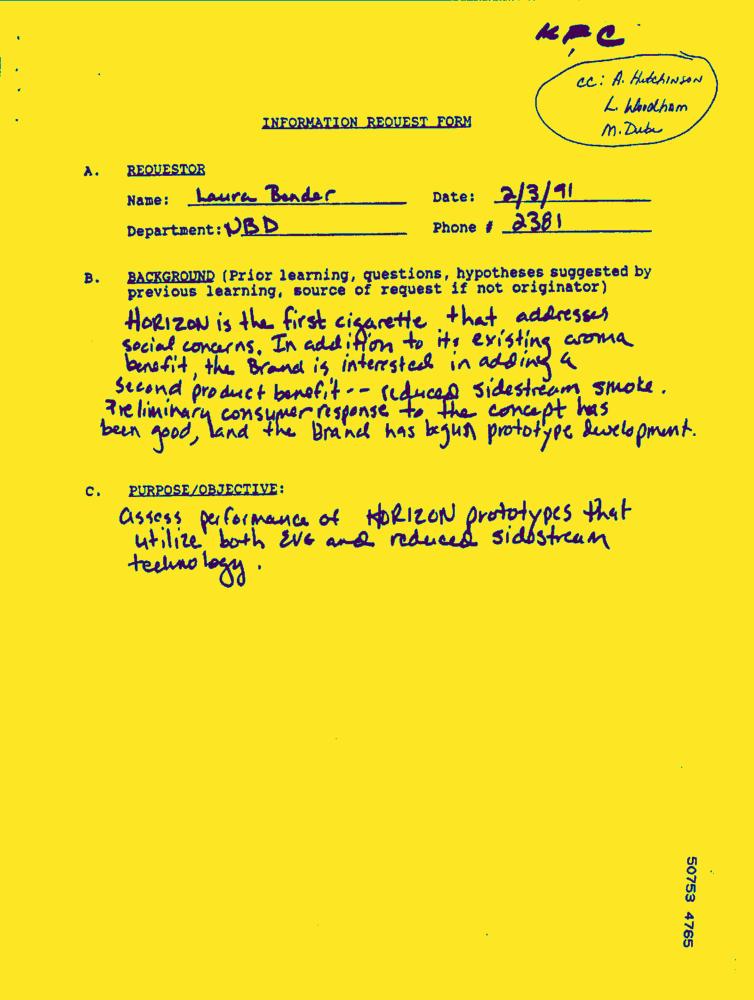 KFC
cc: A. Hutchinson
L. Woodham
M. Dube
INFORMATION REQUEST FORM
A. REQUESTOR
Name: Laura Bender Date: 2/3/91
Department: NBD Phone # 2381
B. BACKGROUND (Prior learning, questions, hypotheses suggested by
previous learning, source of request if not originator)
HORIZON is the first cigarette that addresses
social concerns. In addition to its existing aroma
benefit, the Brand is interested in adding a
second product benefit -- reduced sidestream smoke.
Preliminary consumer response to the concept has
been good, and the Brand has begun prototype development.
C. PURPOSE/OBJECTIVE:
Assess performance of HORIZON prototypes that
utilize both EVG and reduced sidestream
technology.
50753 4765